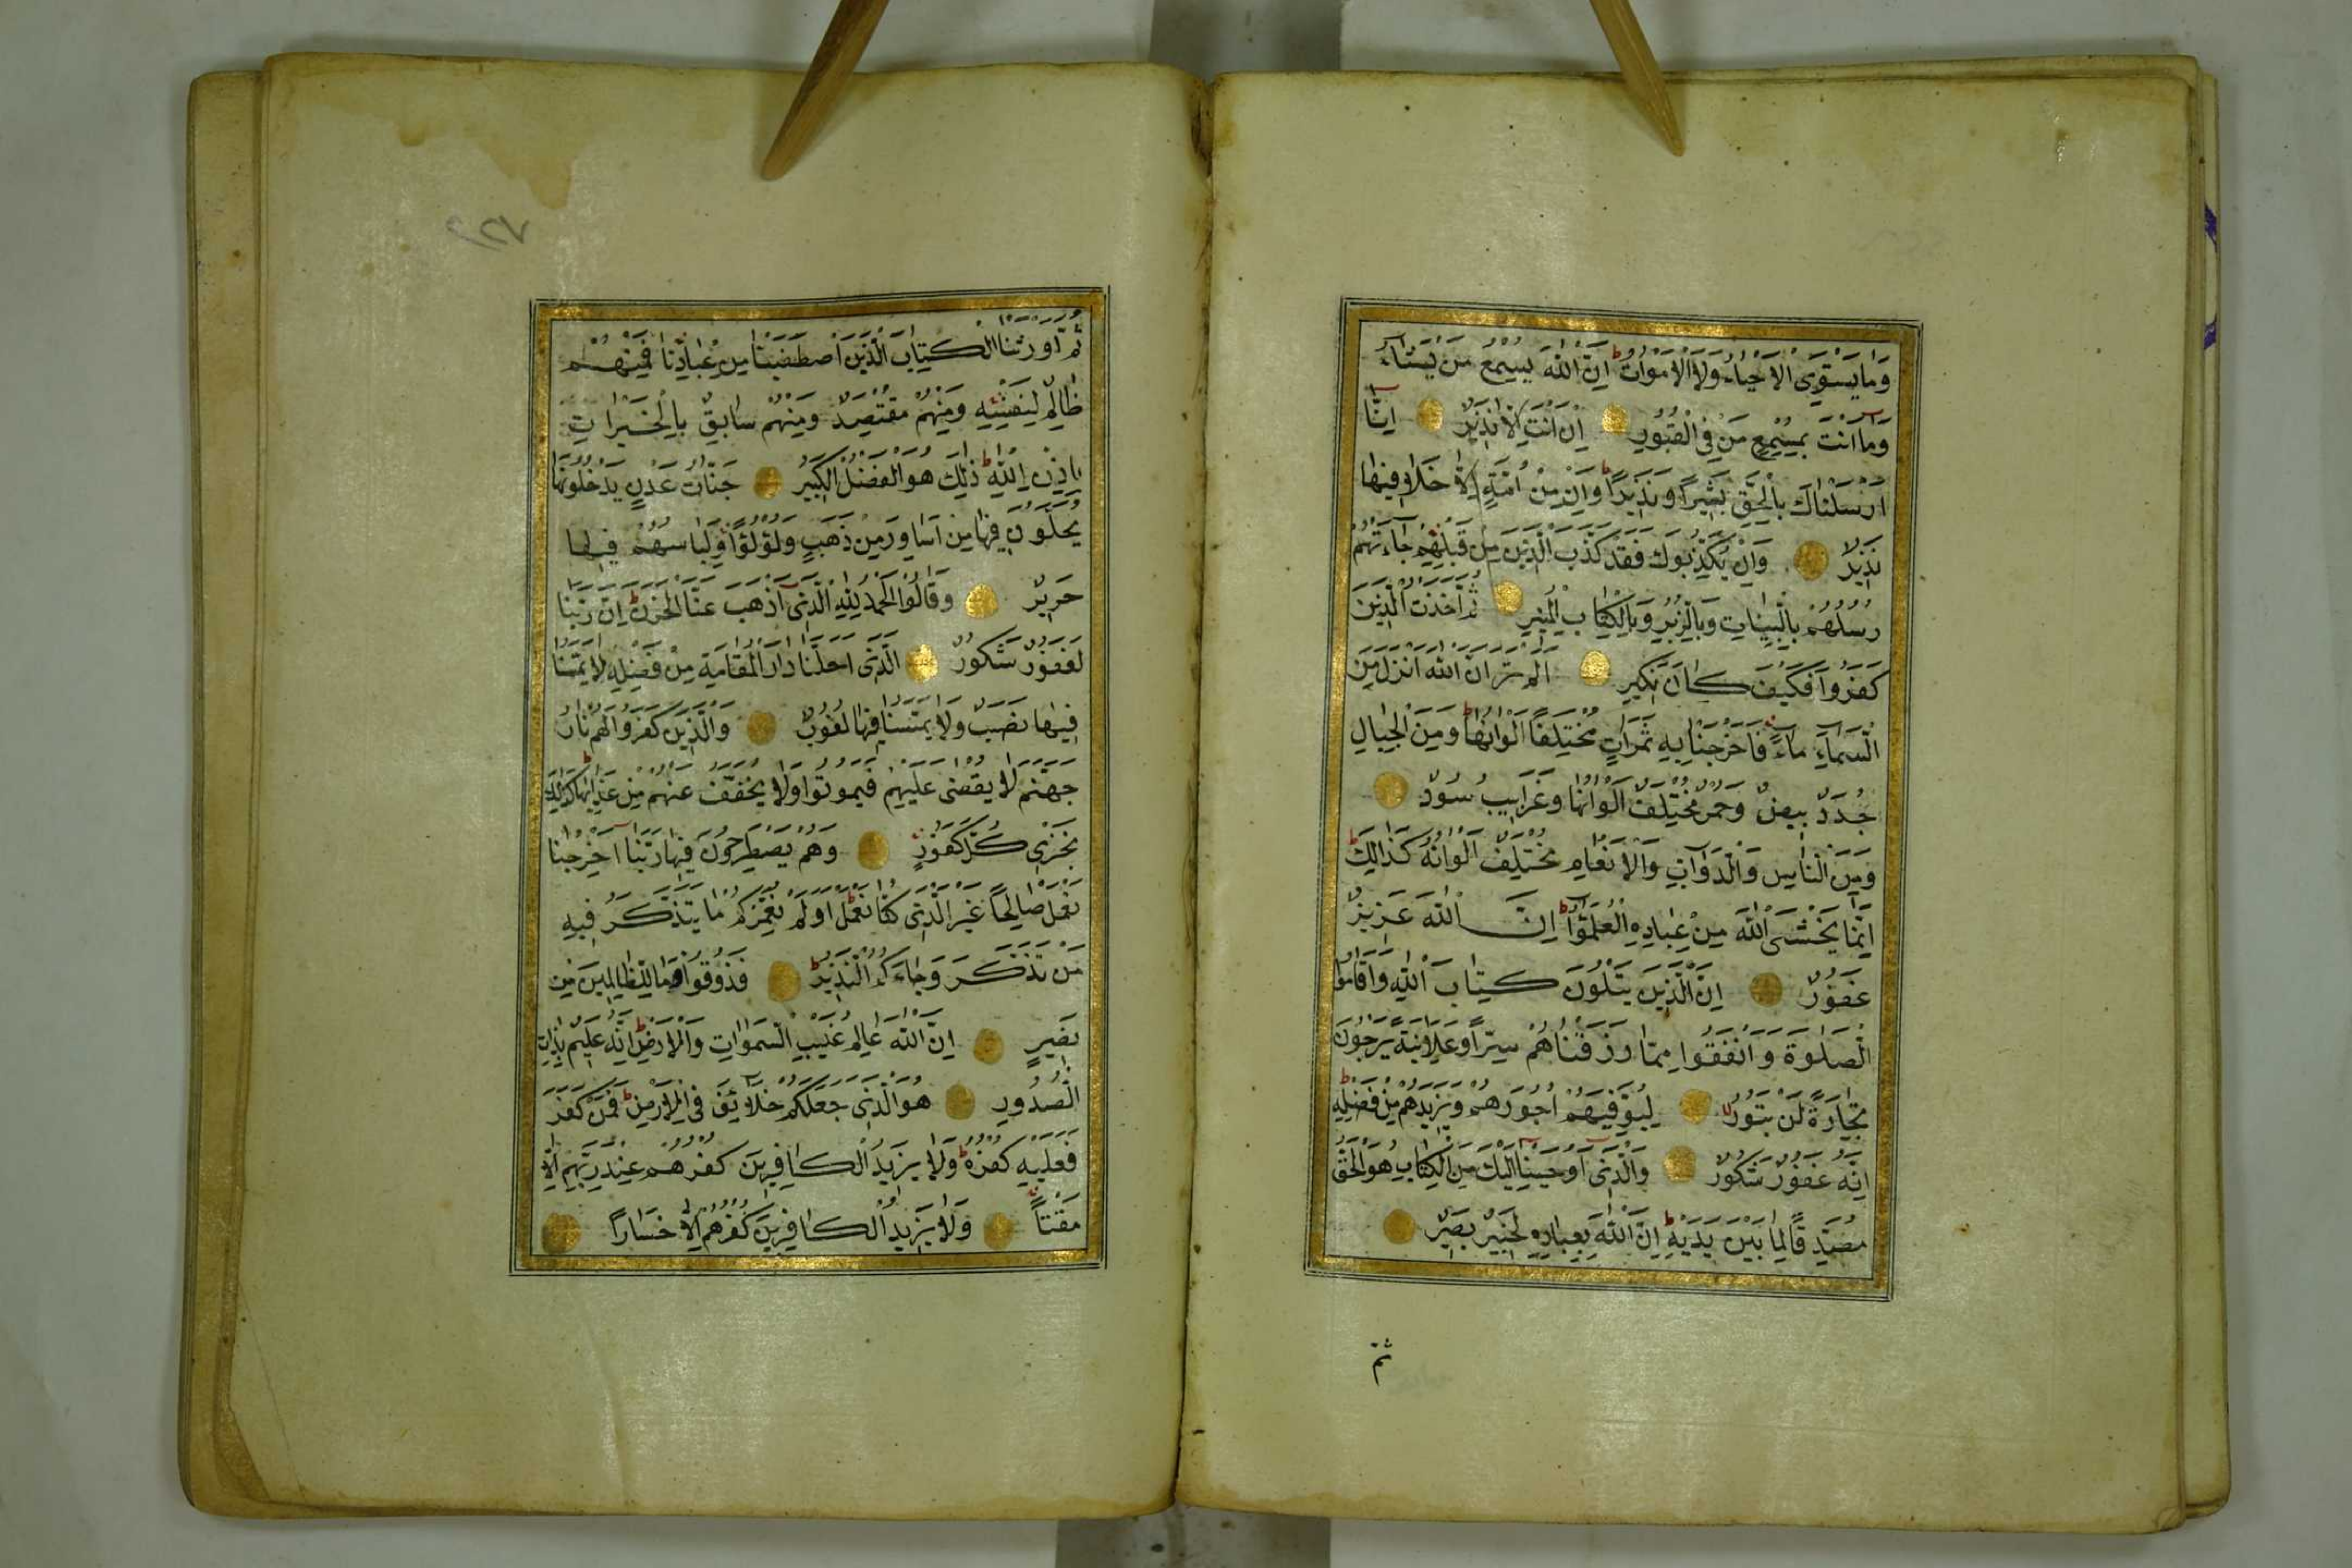 وَمَا يَسْتَوِى الْاَحْيَاءُ وَلَا الْاَمْوَاتُ ط اِنَّ اللّٰهَ يُسْمِعُ مَنْ يَشَاءُ
وَمَا اَنْتَ بِمُسْمِعٍ مَنْ فِى الْقُبُورِ اِنْ اَنْتَ اِلَّا نَذِيرٌ اِنَّا
اَرْسَلْنَاكَ بِالْحَقِّ بَشِيرًا وَنَذِيرًا ط وَاِنْ مِنْ اُمَّةٍ اِلَّا خَلَا فِيهَا
نَذِيرٌ وَاِنْ يُكَذِّبُوكَ فَقَدْ كَذَّبَ الَّذِينَ مِنْ قَبْلِهِمْ جَاءَتْهُمْ
رُسُلُهُمْ بِالْبَيِّنَاتِ وَبِالزُّبُرِ وَبِالْكِتَابِ الْمُنِيرِ ثُمَّ اَخَذْتُ الَّذِينَ
كَفَرُوا فَكَيْفَ كَانَ نَكِيرِ اَلَمْ تَرَ اَنَّ اللّٰهَ اَنْزَلَ مِنَ
السَّمَاءِ مَاءً فَاَخْرَجْنَا بِهِ ثَمَرَاتٍ مُخْتَلِفًا اَلْوَانُهَا ط وَمِنَ الْجِبَالِ
جُدَدٌ بِيضٌ وَحُمْرٌ مُخْتَلِفٌ اَلْوَانُهَا وَغَرَابِيبُ سُودٌ
وَمِنَ النَّاسِ وَالدَّوَابِّ وَالْاَنْعَامِ مُخْتَلِفٌ اَلْوَانُهُ كَذَالِكَ ط
اِنَّمَا يَخْشَى اللّٰهَ مِنْ عِبَادِهِ الْعُلَمٰؤُا ط اِنَّ اللّٰهَ عَزِيزٌ
غَفُورٌ اِنَّ الَّذِينَ يَتْلُونَ كِتَابَ اللّٰهِ وَاَقَامُوا
الصَّلٰوةَ وَاَنْفَقُوا مِمَّا رَزَقْنَاهُمْ سِرًّا وَعَلَانِيَةً يَرْجُونَ
تِجَارَةً لَنْ تَبُورَ لا لِيُوَفِّيَهُمْ اُجُورَهُمْ وَيَزِيدَهُمْ مِنْ فَضْلِهِ ط
اِنَّهُ غَفُورٌ شَكُورٌ وَالَّذِى اَوْحَيْنَا اِلَيْكَ مِنَ الْكِتَابِ هُوَ الْحَقُّ
مُصَدِّقًا لِمَا بَيْنَ يَدَيْهِ ط اِنَّ اللّٰهَ بِعِبَادِهِ لَخَبِيرٌ بَصِيرٌ
ثُمَّ
ثُمَّ اَوْرَثْنَا الْكِتَابَ الَّذِينَ اصْطَفَيْنَا مِنْ عِبَادِنَا فَمِنْهُمْ
ظَالِمٌ لِنَفْسِهِ وَمِنْهُمْ مُقْتَصِدٌ وَمِنْهُمْ سَابِقٌ بِالْخَيْرَاتِ
بِاِذْنِ اللّٰهِ ط ذٰلِكَ هُوَ الْفَضْلُ الْكَبِيرُ جَنَّاتُ عَدْنٍ يَدْخُلُونَهَا
يُحَلَّوْنَ فِيهَا مِنْ اَسَاوِرَ مِنْ ذَهَبٍ وَلُؤْلُؤًا وَلِبَاسُهُمْ فِيهَا
حَرِيرٌ وَقَالُوا الْحَمْدُ لِلّٰهِ الَّذِى اَذْهَبَ عَنَّا الْحَزَنَ ط اِنَّ رَبَّنَا
لَغَفُورٌ شَكُورٌ الَّذِى اَحَلَّنَا دَارَ الْمُقَامَةِ مِنْ فَضْلِهِ لَا يَمَسُّنَا
فِيهَا نَصَبٌ وَلَا يَمَسُّنَا فِيهَا لُغُوبٌ وَالَّذِينَ كَفَرُوا لَهُمْ نَارُ
جَهَنَّمَ لَا يُقْضٰى عَلَيْهِمْ فَيَمُوتُوا وَلَا يُخَفَّفُ عَنْهُمْ مِنْ عَذَابِهَا ط كَذٰلِكَ
نَجْزِى كُلَّ كَفُورٍ وَهُمْ يَصْطَرِخُونَ فِيهَا رَبَّنَا اَخْرِجْنَا
نَعْمَلْ صَالِحًا غَيْرَ الَّذِى كُنَّا نَعْمَلُ ط اَوَلَمْ نُعَمِّرْكُمْ مَا يَتَذَكَّرُ فِيهِ
مَنْ تَذَكَّرَ وَجَاءَكُمُ النَّذِيرُ ط فَذُوقُوا فَمَا لِلظَّالِمِينَ مِنْ
نَصِيرٍ اِنَّ اللّٰهَ عَالِمُ غَيْبِ السَّمٰوَاتِ وَالْاَرْضِ ط اِنَّهُ عَلِيمٌ بِذَاتِ
الصُّدُورِ هُوَ الَّذِى جَعَلَكُمْ خَلَائِفَ فِى الْاَرْضِ ط فَمَنْ كَفَرَ
فَعَلَيْهِ كُفْرُهُ ط وَلَا يَزِيدُ الْكَافِرِينَ كُفْرُهُمْ عِنْدَ رَبِّهِمْ اِلَّا
مَقْتًا وَلَا يَزِيدُ الْكَافِرِينَ كُفْرُهُمْ اِلَّا خَسَارًا